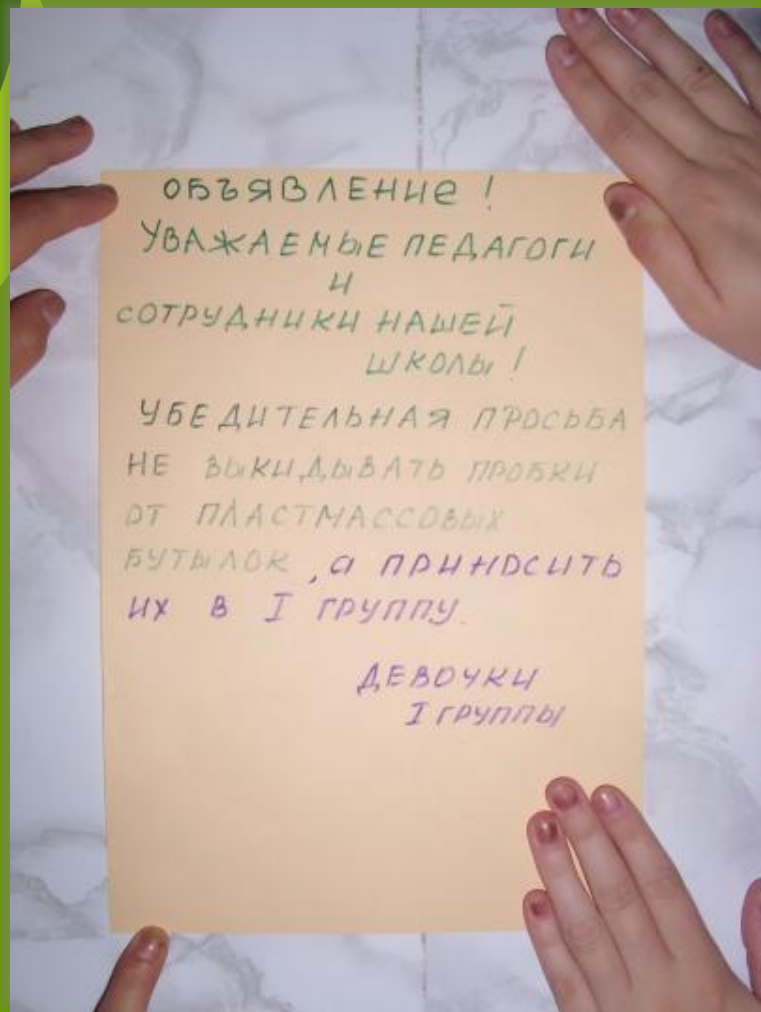 ОБЪЯВЛЕНИе!
УВАЖАЕМЫЕ ПЕДАГОГИ
И
СОТРУДНИКИ НАШЕЙ
ШКОЛЫ!
УБЕДИТЕЛЬНАЯ ПРОСЬБА
НЕ ВЫКИДЫВАТЬ ПРОБКИ
ОТ ПЛАСТМАССОВЫХ
БУТЫЛОК, а ПРИНОСИТЬ
ИХ В I ГРУППУ.
ДЕВОЧКИ
I ГРУППЫ